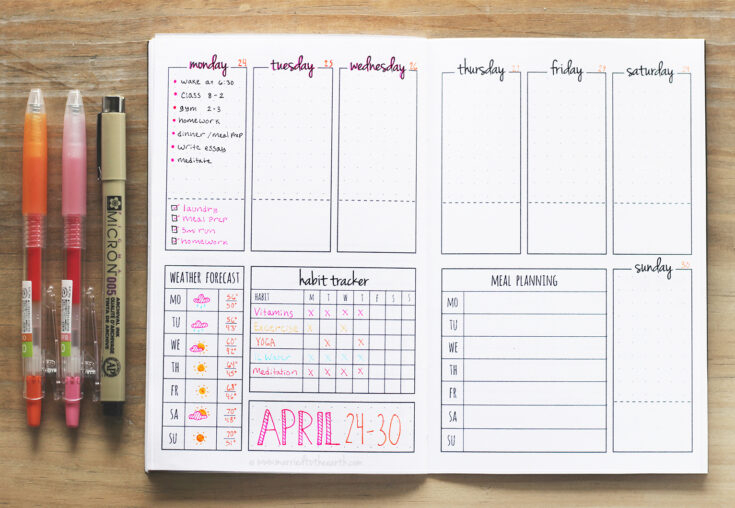 monday 24
• wake at 6:30
• Class 8-2
• gym 2-3
• homework
• dinner / meal prep
• write essay
• meditate
laundry
meal prep
5m run
homework
tuesday 25
wednesday 26
thursday 27
friday 28
saturday 29
sunday 30
WEATHER FORECAST
MO 56° 50°
TU 56° 43°
WE 60°
TH 64° 45°
FR 68°
SA 70° 48°
SU 70° 51°
habit tracker
HABIT M T W T F S S
Vitamins X X X X
Excercise X X
YOGA X X
1L Water X X X X
Meditation X X X X
APRIL 24-30
MEAL PLANNING
MO
TU
WE
TH
FR
SA
SU
MICRON 005
ARCHIVAL INK